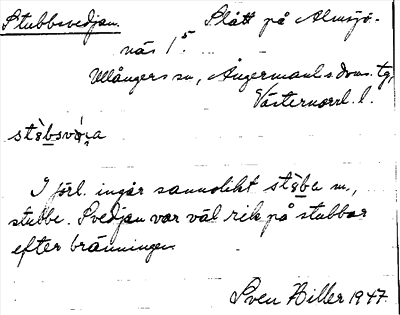 Stubbsvedjan. Slått på Almsjö-
näs 1⁵.
Ullångers sn, Ångermanl:s doms. tg,
Västernorrl. l.
I förl. ingår sannolikt m,
stubbe. Svedjan var väl rik på stubbar
efter bränningen
Sven Hiller 1947